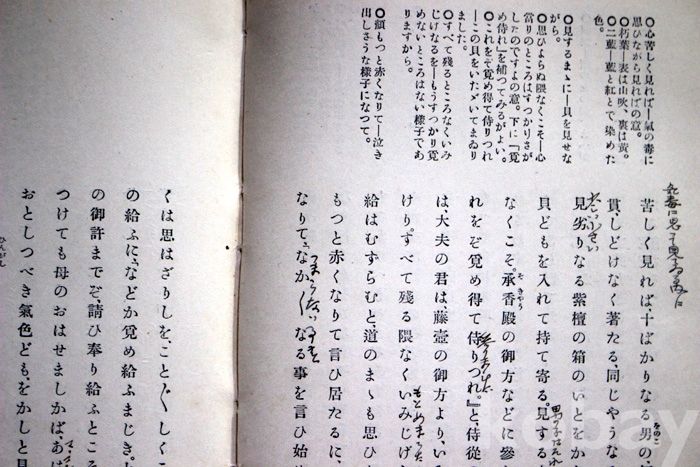 ◎心苦しく見れば―氣の毒に
思ひながら見ればの意。
◎朽葉―表は山吹、裏は黄。
◎二藍―藍と紅とで染めた
色。
◎見するまゝに―貝を見せな
がら。
◎思ひよらぬ隈なくこそ―心
當りのところはすつかりさが
したのですよの意。下に「覓
め侍れ」を補つてみるがよい。
◎これをぞ覓め得て侍りつれ
―この貝をいたゞいてまゐり
ました。
◎すべて殘るところなくいみ
じげなるを―もうすつかり覓
めないところはない樣子であ
りますから。
◎顏もつと赤くなりて―泣き
出しさうな樣子になつて。
苦しく見れば、十ばかりなる男の、
貫、しどけなく著たる同じやうな
見劣りなる紫檀の箱のいとをか
貝どもを入れて持て寄る。見する
なくこそ。承香殿の御方などに參
れをぞ覓め得て侍りつれ。』と、侍從
は大夫の君は、藤壺の御方より、い
けり。すべて殘る隈なくいみじげ
給はむずらむと、道のまゝも思ひ
もつと赤くなりて言ひ居たるに、
なりて、なか〱なる事を言ひ始め
くは思はざりしを、こと〲しくこ
の給ふに、などか覓め給ふまじき。上
の御許までぞ、請ひ奉り給ふところ
つけても母のおはせましかば、あは
おとしつべき氣色どもをかしと見
kobay